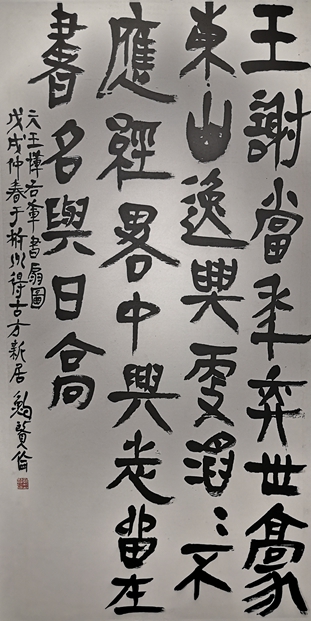 王謝當年弈世豪
東山逸興更滔〻不
應經畧中興志留在
書名與日高
元王惲右軍書扇圖
戊戌仲春于以得古方新居